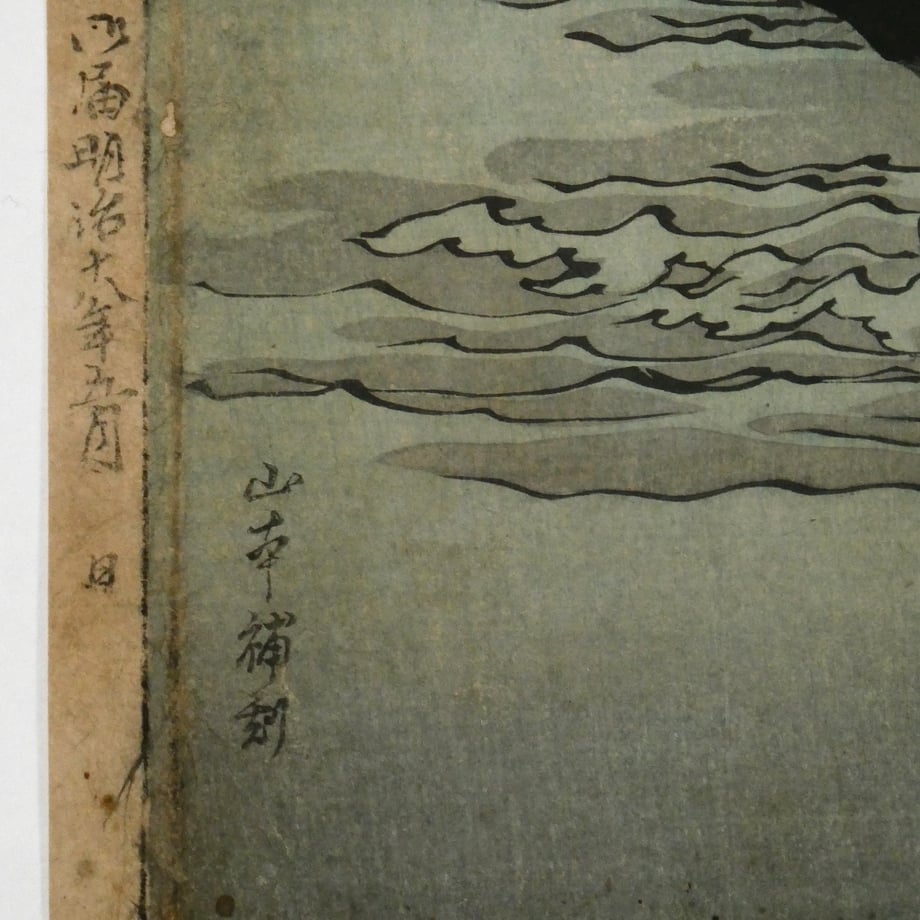 御届明治十八年五月　日
山本補刻